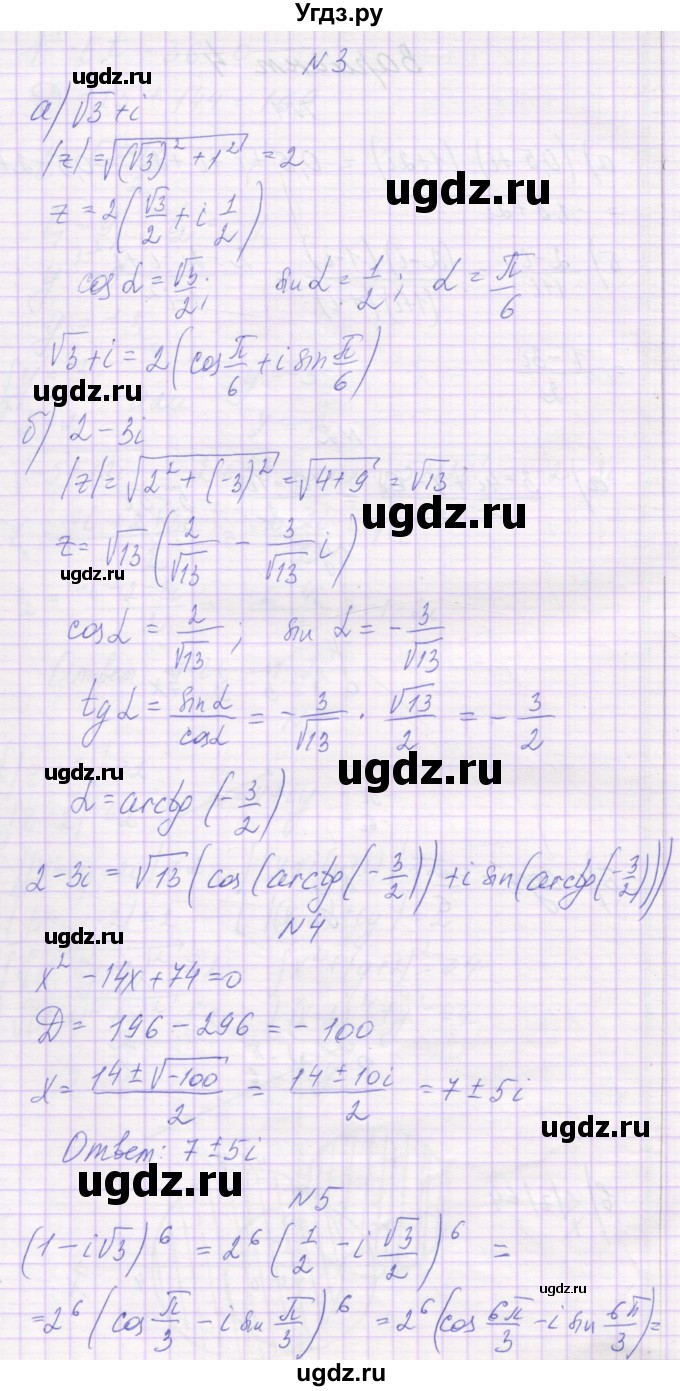 Угдз.ру
№3
ugdz.ru
а) √3 + i
|z| = √((√3)² + 1²) = 2
ugdz.ru
z = 2(√3/2 + i 1/2)
cos α = √3/2; sin α = 1/2; α = π/6
√3 + i = 2(cos π/6 + i sin π/6)
ugdz.ru
б) 2 - 3i
|z| = √(2² + (-3)²) = √(4 + 9) = √13
ugdz.ru
z = √13(2/√13 - 3/√13 i)
ugdz.ru
cos α = 2/√13; sin α = - 3/√13
tg α = sin α/cos α = - 3/√13 · √13/2 = - 3/2
ugdz.ru
ugdz.ru
α = arctg(- 3/2)
2 - 3i = √13(cos(arctg(- 3/2)) + i sin(arctg(- 3/2)))
№4
ugdz.ru
x² - 14x + 74 = 0
D = 196 - 296 = - 100
x = (14 ± √-100)/2 = (14 ± 10i)/2 = 7 ± 5i
ugdz.ru
Ответ: 7 ± 5i
ugdz.ru
№5
(1 - i√3)⁶ = 2⁶(1/2 - i √3/2)⁶ =
ugdz.ru
= 2⁶(cos π/3 - i sin π/3)⁶ = 2⁶(cos 6π/3 - i sin 6π/3) =
ugdz.ru